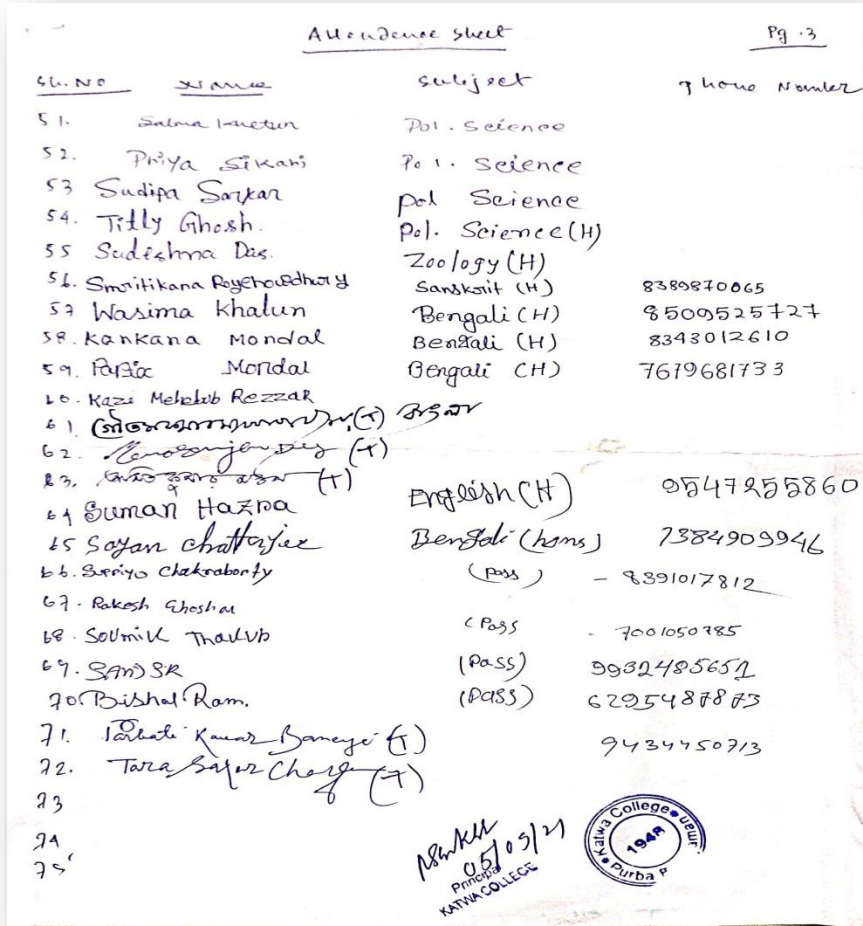 Attendence sheet Pg.3
SL.NO Name Subject Phone Number
51. Salma Khatun Pol. Science
52. Priya Sikari Pol. Science
53 Sudipa Sarkar Pol Science
54. Titly Ghosh. Pol. Science (H)
55 Sudeshna Das. Zoology (H)
56. Smritikana Roychowdhury Sanskrit (H) 8389870065
57 Wasima Khatun Bengali (H) 8509525727
58. Kankana Mondal Bengali (H) 8343012610
59. Mondal Bengali (H) 7679681733
60. Kazi Mehebub Rezzak
61. (T)
62. (T)
63. (T)
64 Suman Hazra English (H) 9547255860
65 Sayan Chatterjee Bengali (hons) 7384909946
66. Supriyo Chakraborty (Pass) - 8391017812
67. Rakesh Ghoshal
68. Soumik Thakur (Pass - 7001050785
69. (Pass) 9932485651
70. Bishal Ram. (Pass) 6295487873
71. Kumar (T) 9434450713
72. Tara (T)
73
74
75
05/09/21
Principal
KATWA COLLEGE
Katwa College
1948
Purba